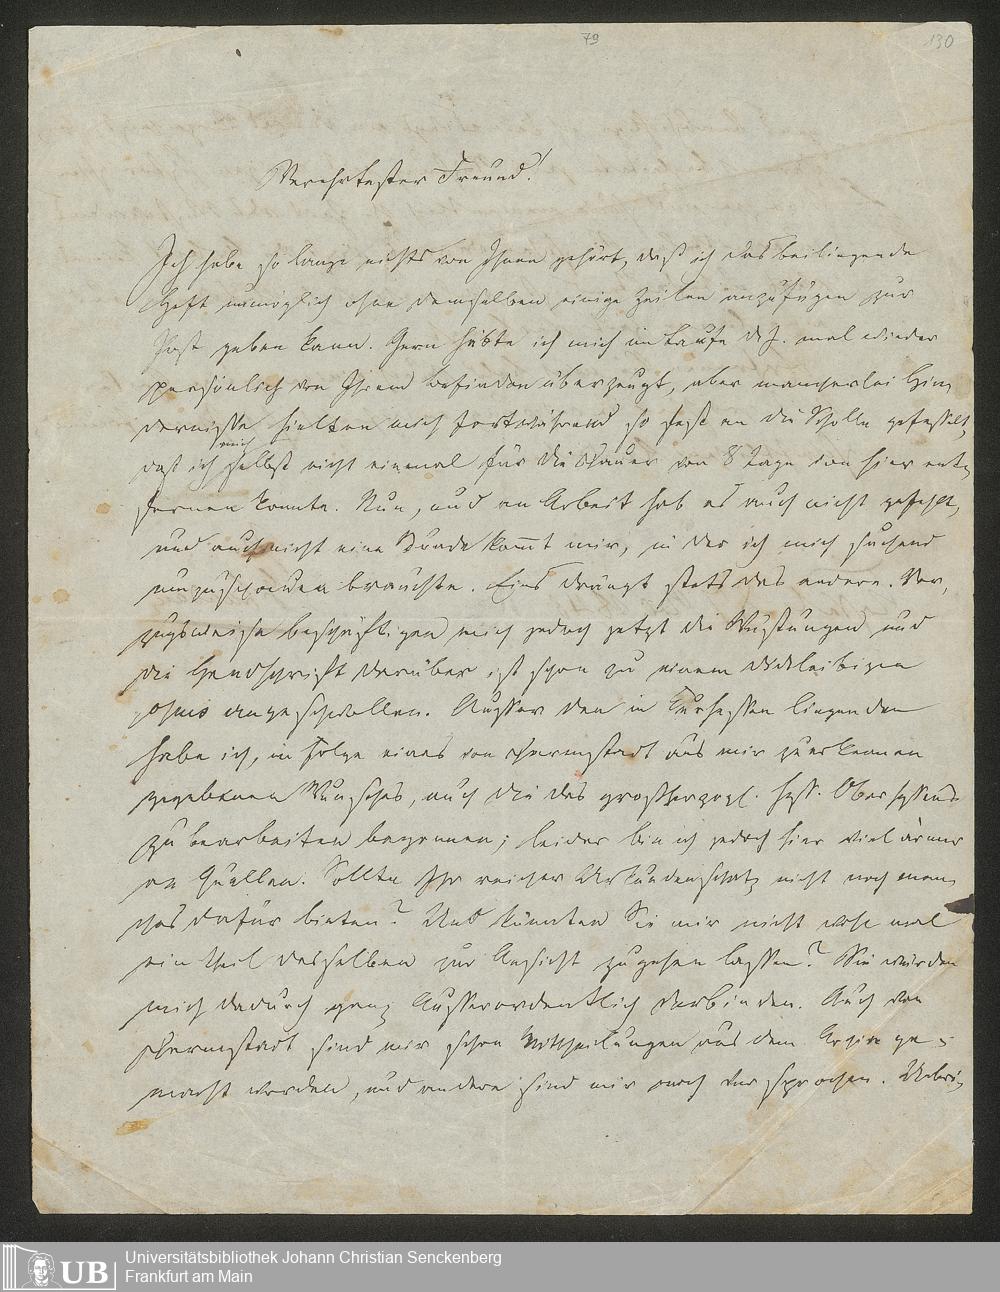 79
130
Verehrtester Freund!
Ich habe so lange nichts von Ihnen gehört, daß ich das beiliegende
Heft unmöglich ohne demselben einige Zeilen anzufügen zur
Post geben kann. Gern hätte ich mich im Laufe d. J. mal wieder
persönlich von Ihrem Befinden überzeugt, aber mancherlei Hin-
dernisse hielten mich fortwährend so fest an die Scholle gefesselt,
daß ich mich selbst nicht einmal für die Dauer von 8 Tagen von hier ent-
fernen konnte. Nun, und an Arbeit hab es auch nicht gefehlt,
und auch nicht eine Stunde kommt mir, in der ich mich suchend
umzuschauen brauchte. Eins drängt stets das andere. Vor-
zugsweise beschäftigen mich jedoch jetzt die Wüstungen und
die Handschrift darüber ist schon zu einem dickleibigen
angeschwollen. Ausser den in Kurhessen liegenden
habe ich, in Folge eines von Darmstadt aus mir zu erkennen
gegebenen Wunsches, auch die des großherzogl. hess. Oberhessens
zu bearbeiten begonnen; leider bin ich jedoch hier viel ärmer
an Quellen. Sollte Ihr reicher Urkundenschatz nicht noch man-
ches dafür bieten? Und könnten Sie mir nicht wohl mal
ein Theil desselben zur Ansicht zugehen lassen? Sie würden
mich dadurch ganz Ausserordentlich verbinden. Auch von
Darmstadt sind mir schon Mittheilungen aus dem Archive ge-
macht worden, und andere sind mir noch versprochen. Uebri-
UB
Universitätsbibliothek Johann Christian Senckenberg
Frankfurt am Main